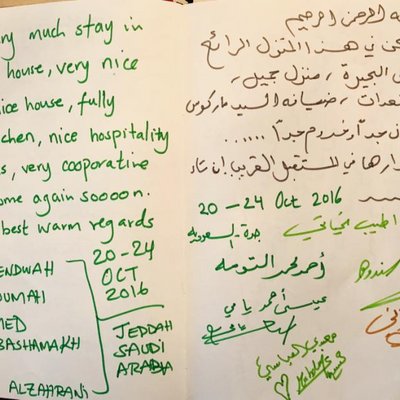 ry much stay in
house, very nice
ice house, fully
chen, nice hospitality
s, very cooporative
ome again sooooon.
best warm regards
20-24
OCT
2016
ENDWAH
OUMAH
MED
BASHAMAKH
ALZAHRANI
JEDDAH
SAUDI
ARABIA
ه الرحمن الرحيم
في هذا المنزل الرائع
البحيرة ، منزل جميل ،
ضيافة السيد ماركوس
جداً جداً ......
في المستقبل القريب إن شاء
20-24 Oct 2016
جدة - السعودية
أحمد محمد التومه
عيسى أحمد يامي